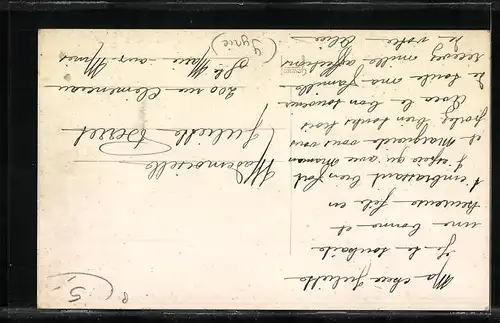 Ma chère Juliette
Je te souhaite
une bonne et
heureuse fête en
t'embrassant bien fort
J'espère qu'avec Maman
et Marguerite vous vous
portez bien toutes trois
Avec le bon souvenir
de toute ma famille
recevez mille affections
de votre Alice
Mademoiselle
Juliette
200 rue Clemenceau
Ste Marie-aux-Mines
5,-
8